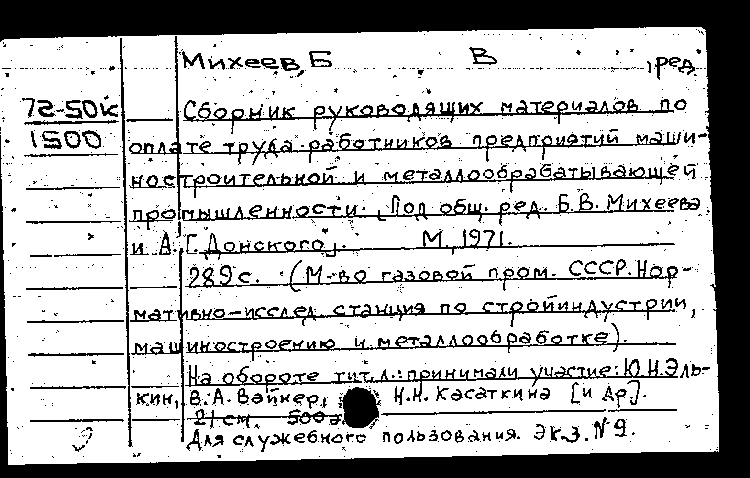 Михеев, Б В , ред.
72-50к
1500
Сборник руководящих материалов по
оплате труда работников предприятий маши-
ностроительной и металлообрабатывающей
промышленности. [Под общ. ред. Б.В. Михеева
и А.Г. Донского]. М., 1971.
289 с. (М-во газовой пром. СССР. Нор-
мативно-исслед. станция по стройиндустрии,
машиностроению и металлообработке).
На обороте тит. л.: принимали участие: Ю.Н. Эль-
кин, В.А. Вайнер, Н.Н. Касаткина [и др].
21 см. 500 э
Для служебного пользования. Экз. №9.